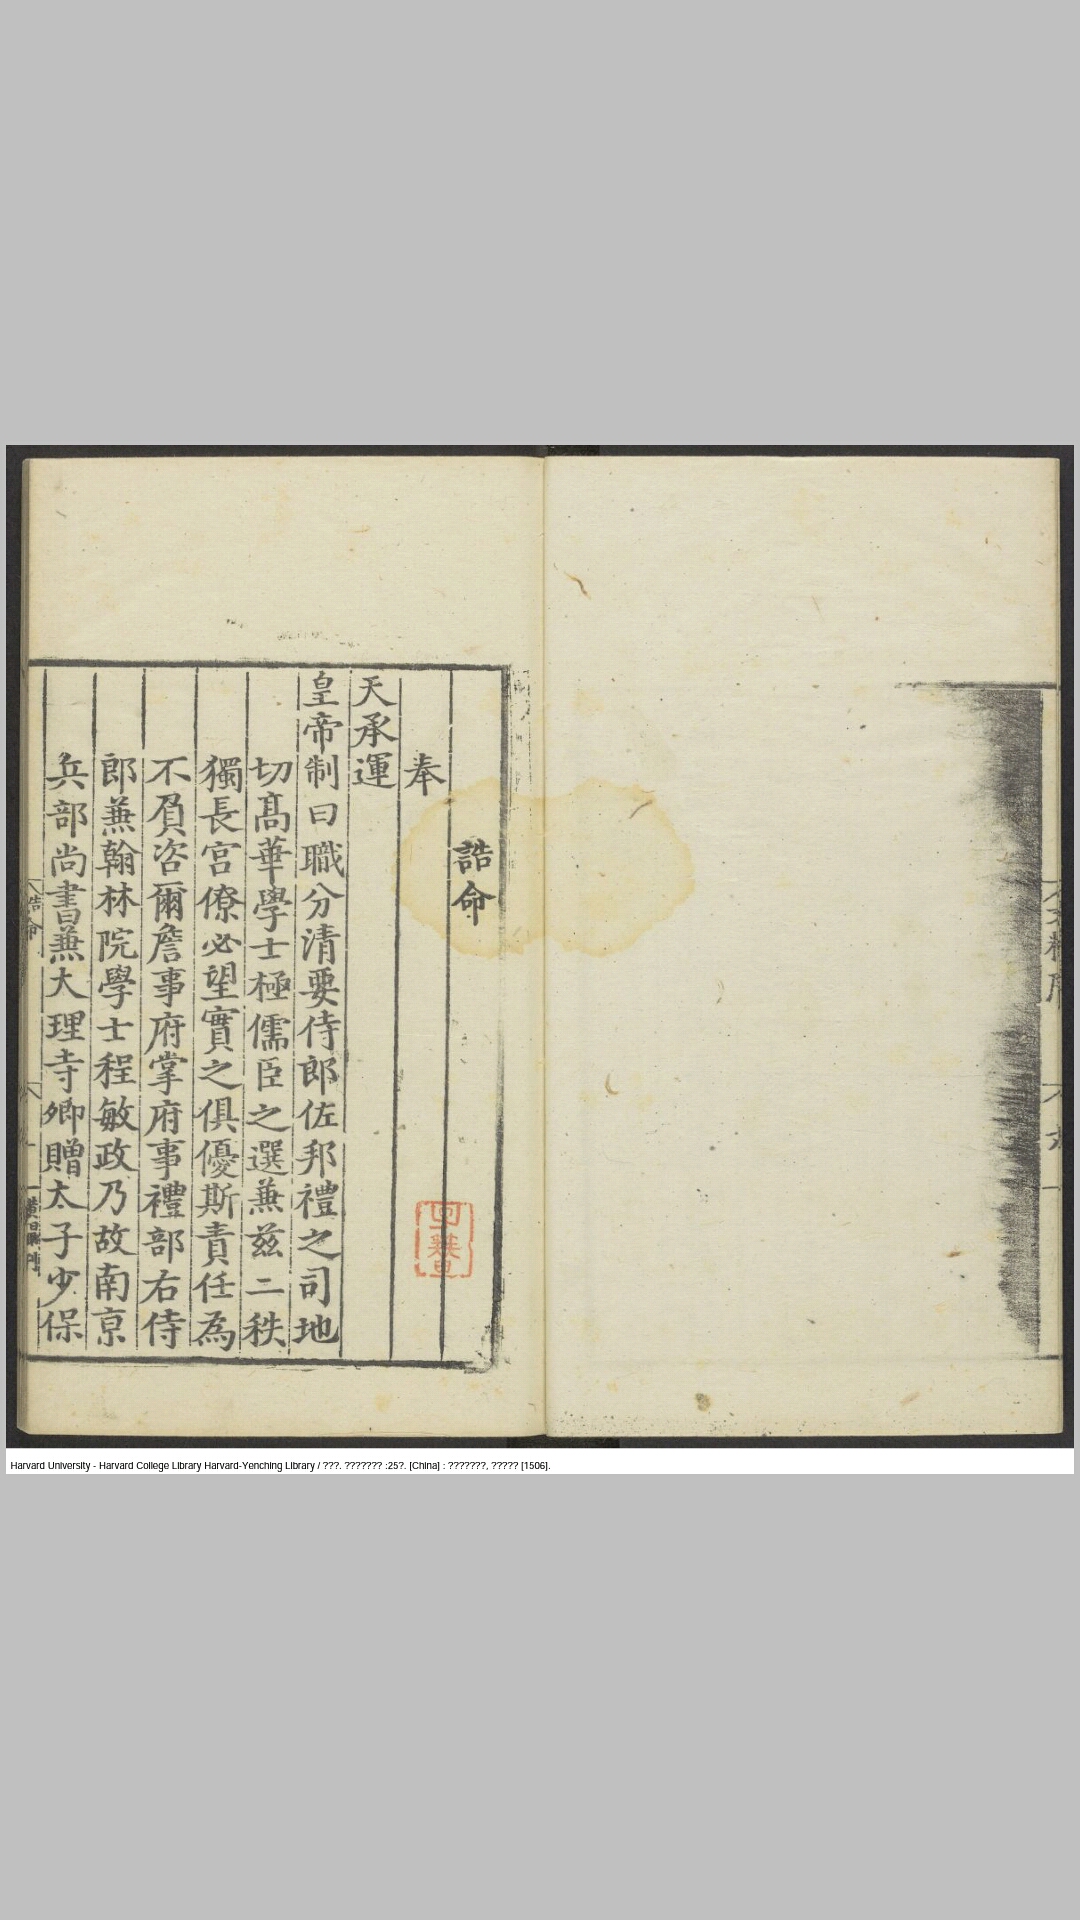 誥命
奉
天承運
皇帝制曰職分清要侍郎佐邦禮之司地
切髙華學士極儒臣之選兼兹二秩
獨長宮僚必望實之俱優斯責任為
不負咨爾詹事府掌府事禮部右侍
郎兼翰林院學士程敏政乃故南京
兵部尚書兼大理寺卿贈太子少保
誥命
Harvard University - Harvard College Library Harvard-Yenching Library / ???. ??????? :25?. [China] : ???????, ????? [1506].